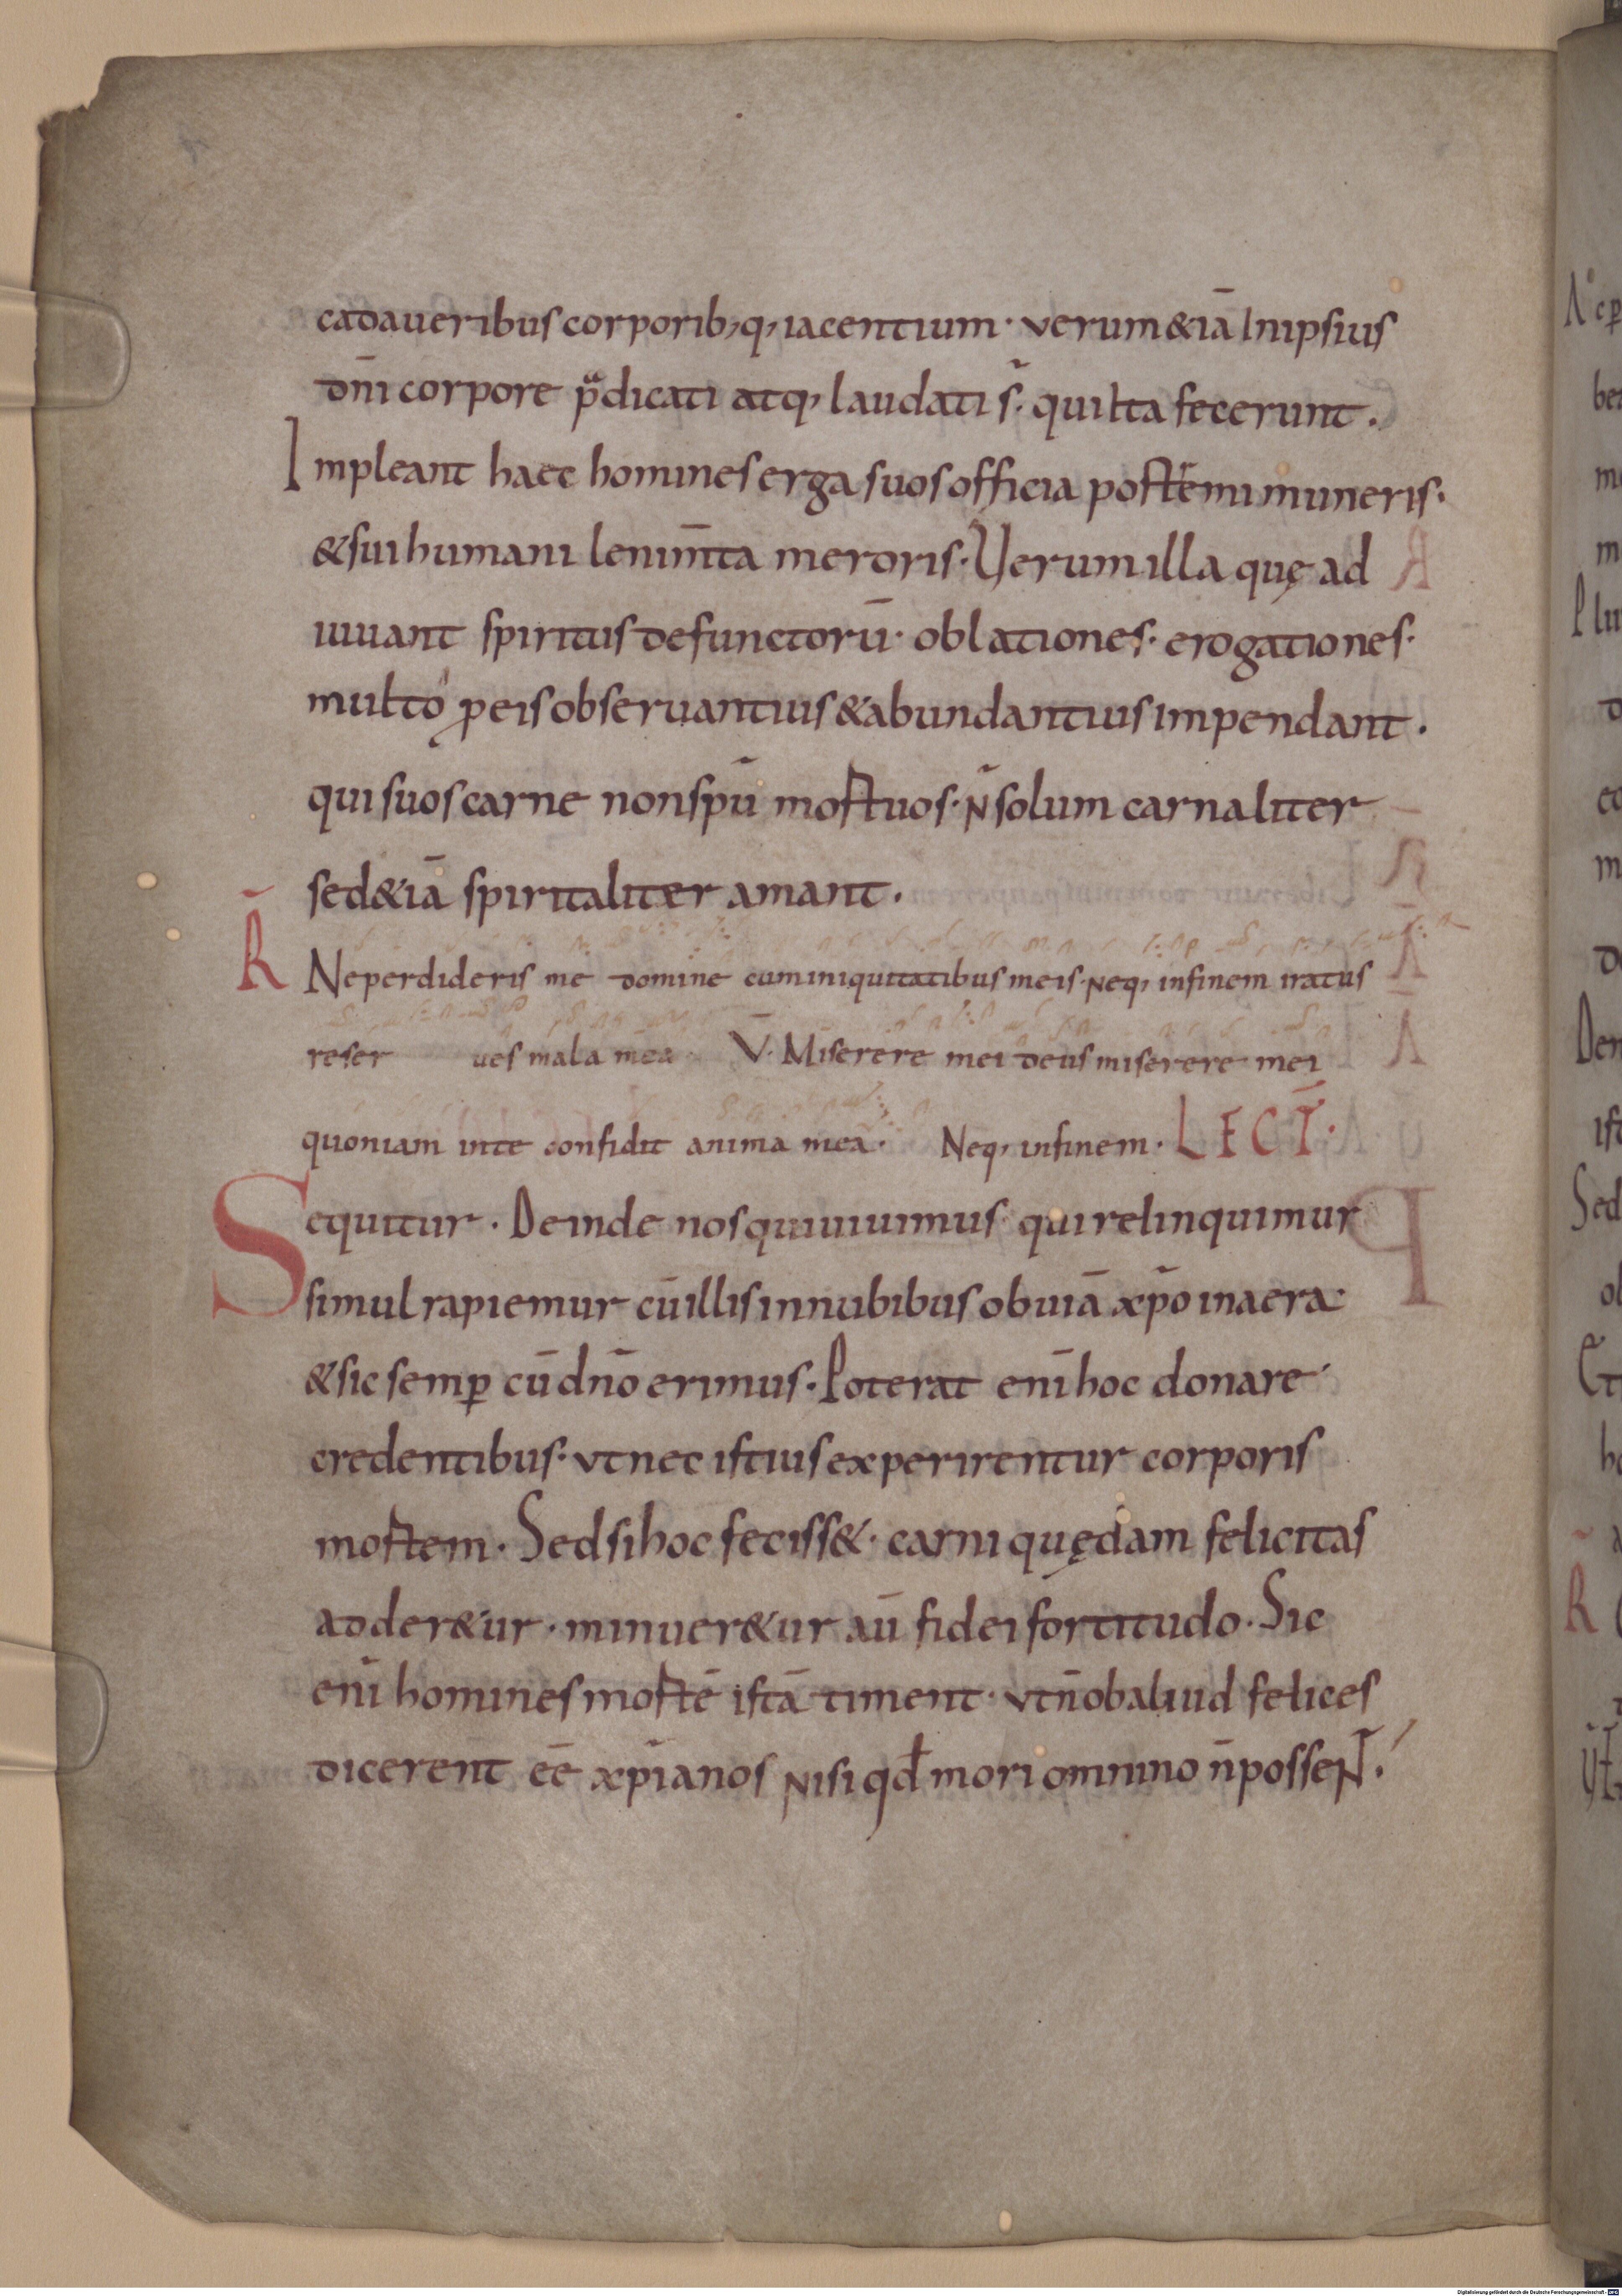 cadaueribus corporib;q; iacentium · verum &iā Inipsius
dn̄i corpore p̄dicati atq; laudati s̄· quiIta fecerunt .
Impleant haec homines erga suos officia postremi muneris·
& sui humani lenim̄ta meroris· Uerum illa quę ad
iuuant spiritus defunctorū· oblationes· erogationes·
multo ꝓ eis obseruantius & abundantius impendant .
qui suos carne non spū mortuos· n̄ solum carnaliter
sed &iā spiritaliter amant .
R̄ Ne perdideris me domine cum iniquitatibus meis· neq; infinem iratus
reser ues mala mea · V̄· Miserere mei deus miserere mei
quoniam inte confidit anima mea · Neq; infinem · LECT̄·
Sequitur . Deinde nos qui uiuimus· qui relinquimur
simul rapiemur cū illis innubibus obuiā xp̄o inaera·
& sic semꝑ cū dn̄o erimus· Poterat enī hoc donare
credentibus· vt nec istius experirentur corporis
mortem · Sed si hoc feciss&· carni quędam felicitas
adder&ur · minuer&ur aū fidei fortitudo · Sic
enī homines mortē istā timent · vt n̄ ob aliud felices
dicerent eē xp̄ianos nisi qđ mori omnino n̄ possent̄ .